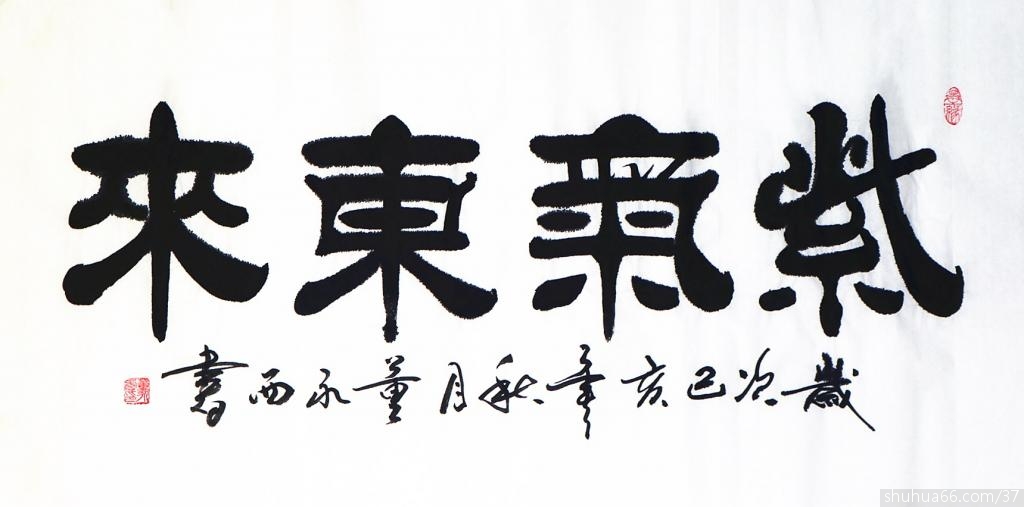 紫氣東來
歲次己亥年秋月董永西書
shuhua66.com/37